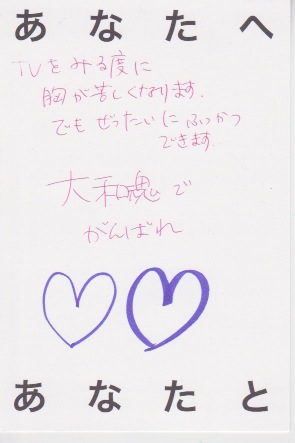 あなたへ
TVをみる度に
胸が苦しくなります.
でもぜったいにふっかつ
できます
大和魂で
がんばれ
あなたと